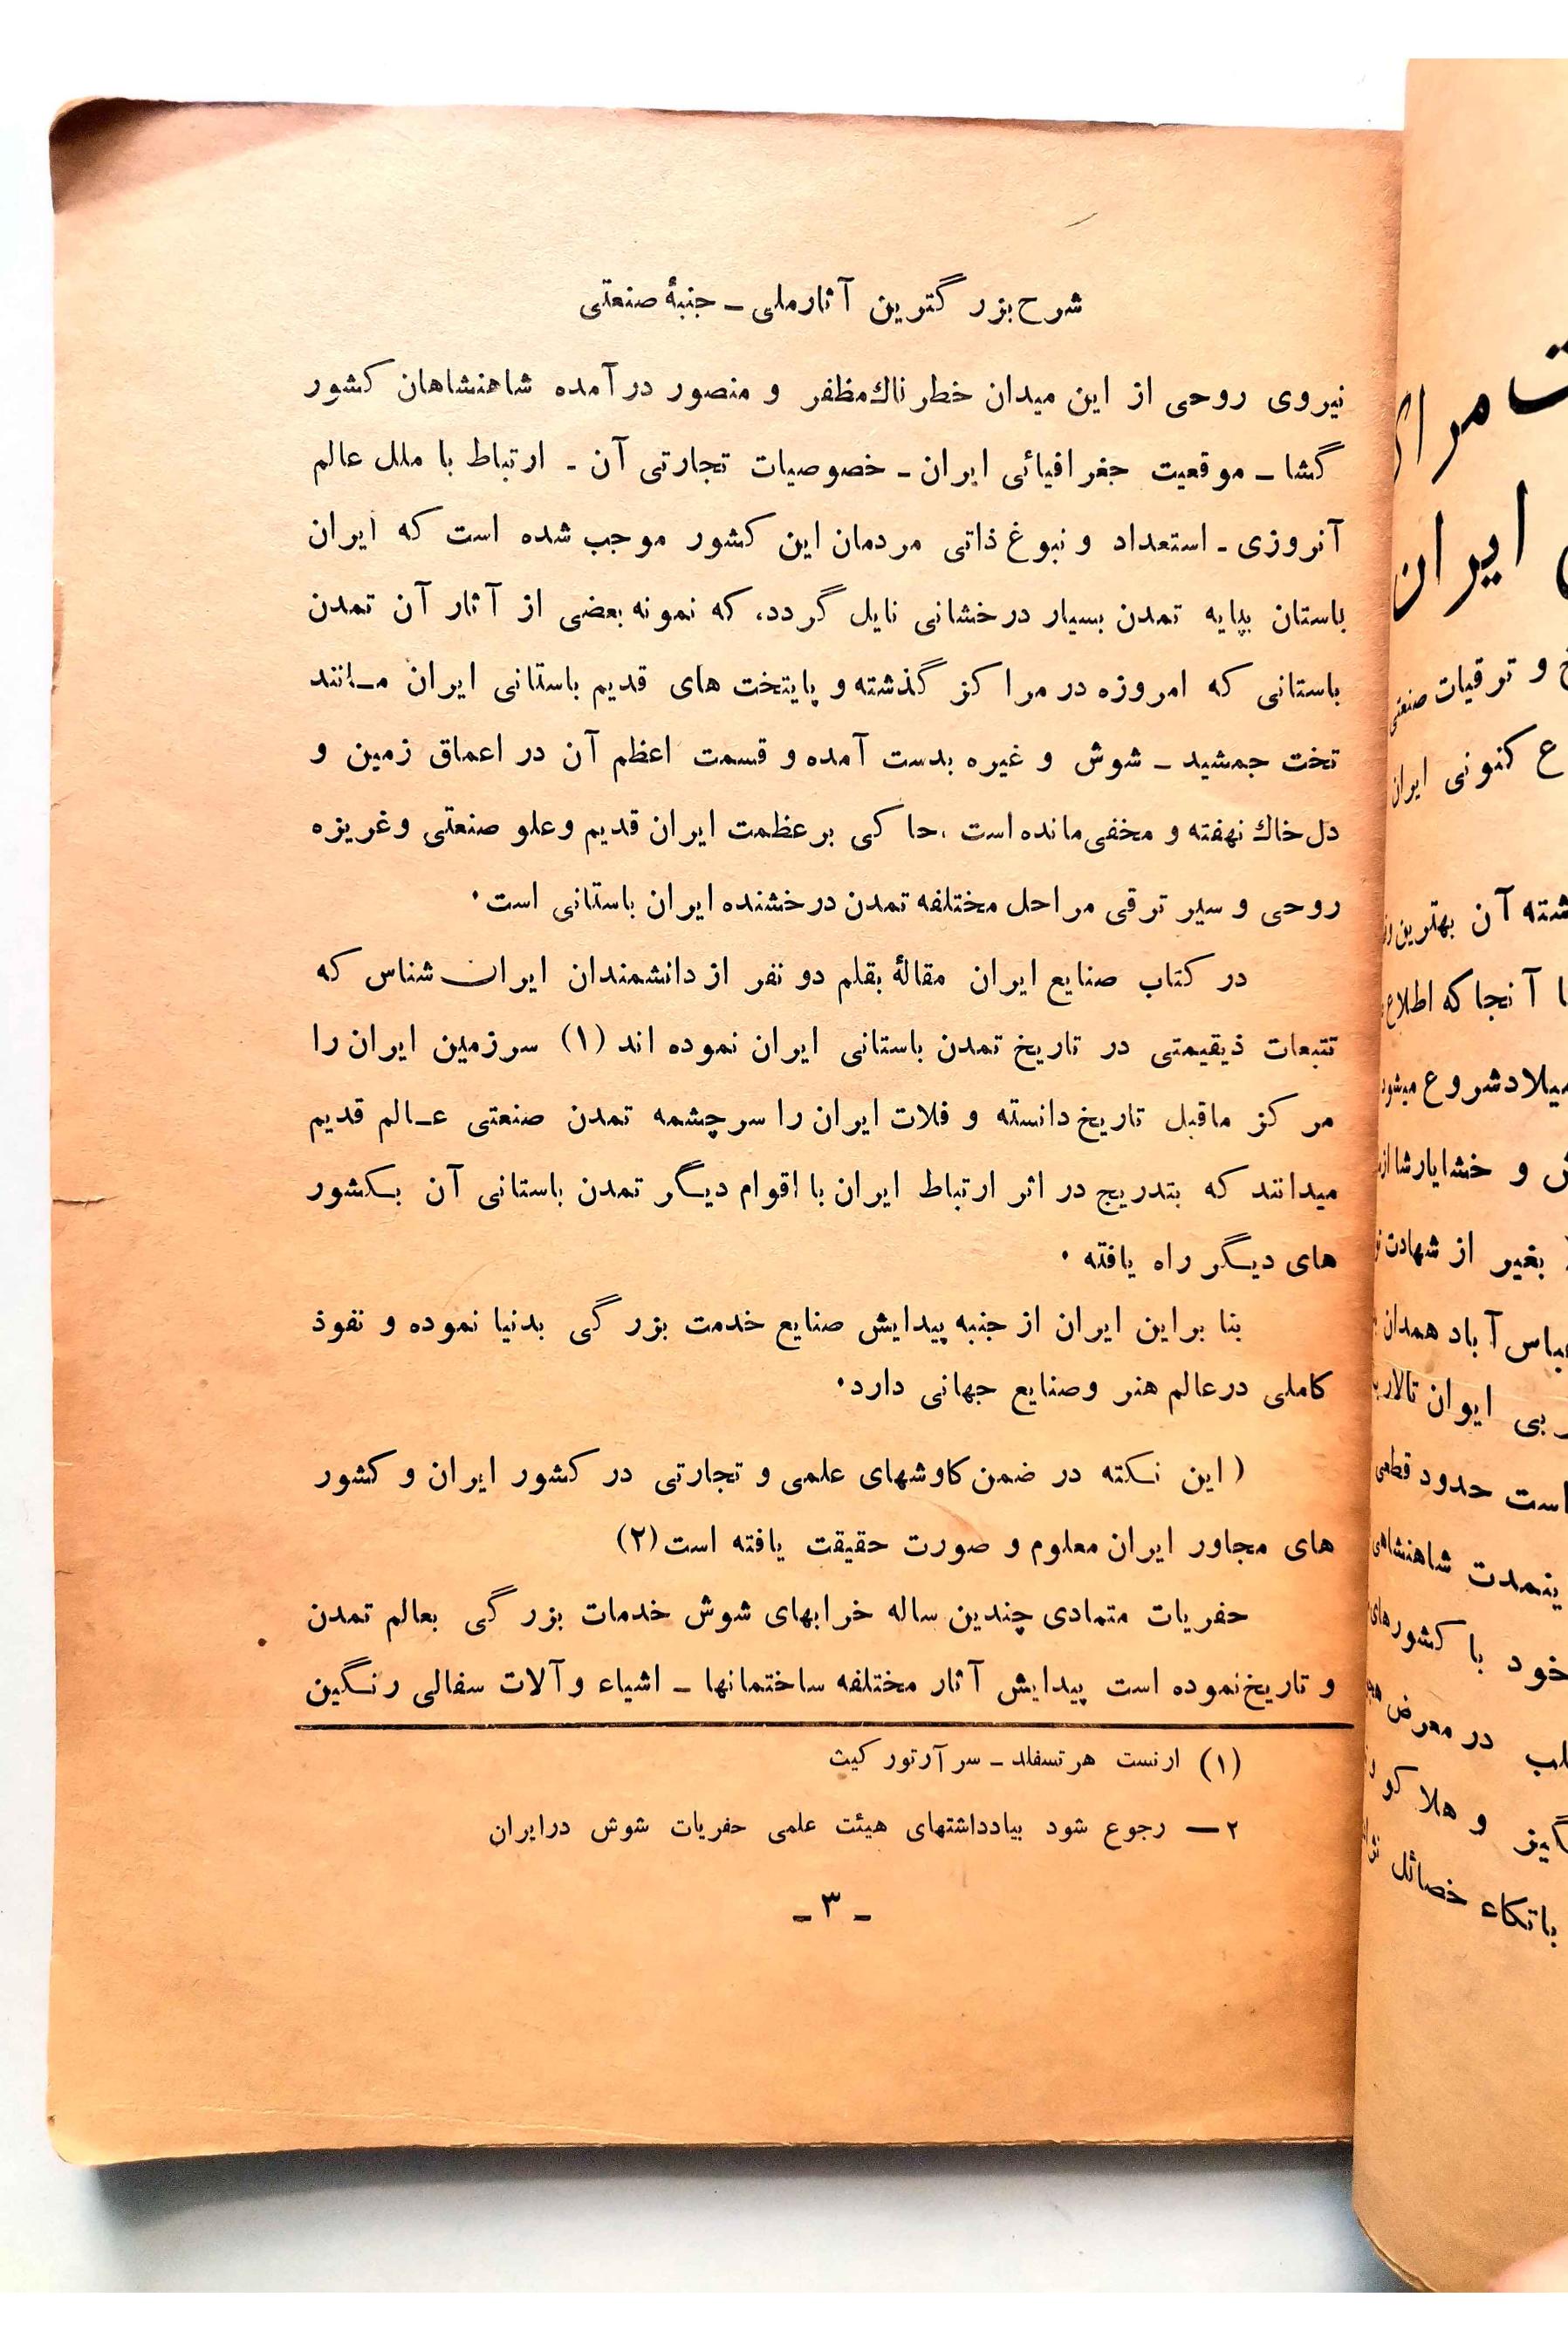 شرح بزرگترین آثار ملی ـ جنبهٔ صنعتی
نیروی روحی از این میدان خطرناك مظفر و منصور درآمده شاهنشاهان کشور
گشا ـ موقعیت جغرافیائی ایران ـ خصوصیات تجارتی آن ـ ارتباط با ملل عالم
آنروزی ـ استعداد و نبوغ ذاتی مردمان این کشور موجب شده است که ایران
باستان بپایه تمدن بسیار درخشانی نایل گردد، که نمونه بعضی از آثار آن تمدن
باستانی که امروزه در مراکز گذشته و پایتخت های قدیم باستانی ایران مـانند
تخت جمشید ـ شوش و غیره بدست آمده و قسمت اعظم آن در اعماق زمین و
دل خاك نهفته و مخفی مانده است ، حاکی بر عظمت ایران قدیم و علو صنعتی و غریزه
روحی و سیر ترقی مراحل مختلفه تمدن درخشنده ایران باستانی است.
در کتاب صنایع ایران مقالهٔ بقلم دو نفر از دانشمندان ایران شناس که
تتبعات ذیقیمتی در تاریخ تمدن باستانی ایران نموده اند (۱) سرزمین ایران را
مرکز ماقبل تاریخ دانسته و فلات ایران را سرچشمه تمدن صنعتی عـالم قدیم
میدانند که بتدریج در اثر ارتباط ایران با اقوام دیـگر تمدن باستانی آن بـکشور
های دیـگر راه یافته .
بنا براین ایران از جنبه پیدایش صنایع خدمت بزرگی بدنیا نموده و نفوذ
کاملی درعالم هنر و صنایع جهانی دارد.
( این نـکته در ضمن کاوشهای علمی و تجارتی در کشور ایران و کشور
های مجاور ایران معلوم و صورت حقیقت یافته است (۲)
حفریات متمادی چندین ساله خرابهای شوش خدمات بزرگی بعالم تمدن
و تاریخ نموده است پیدایش آثار مختلفه ساختمانها ـ اشیاء و آلات سفالی رنـگین
(۱) ارنست هرتسفلد ـ سر آرتور کیث
۲ — رجوع شود بیادداشتهای هیئت علمی حفریات شوش درایران
ـ ۳ ـ
ایران
و ترقیات صنعتی
ع کنونی ایران
آن بهترین
آنجا که اطلاع
شروع میشود
و خشایارشا
بغیر از شهادت
آباد همدان
ایوان تالار
است حدود قطعی
شاهنشاهی
خود با کشورهای
در معرض
و هلاکو
باتکاء خصائل